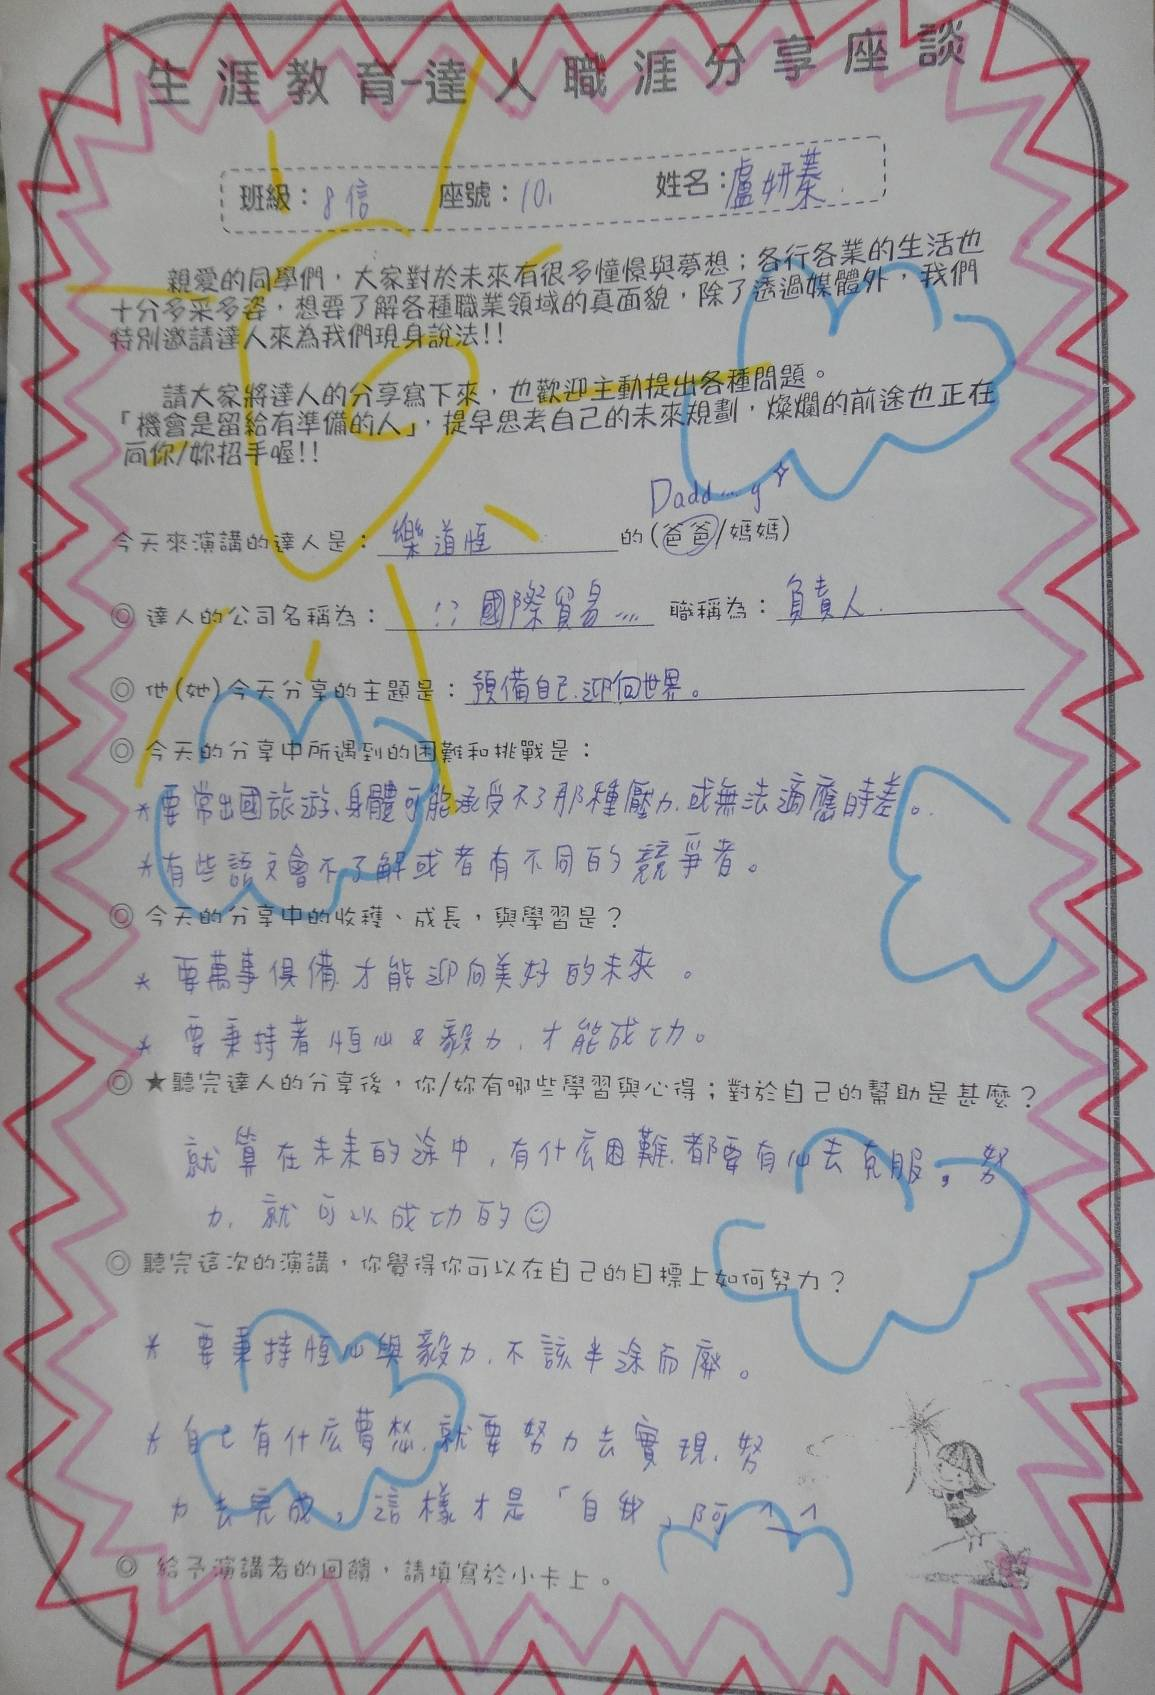 生涯教育-達人職涯分享座談
班級：8信 座號：10. 姓名：盧妍蓁.
親愛的同學們，大家對於未來有很多憧憬與夢想；各行各業的生活也
十分多采多姿，想要了解各種職業領域的真面貌，除了透過媒體外，我們
特別邀請達人來為我們現身說法!!
請大家將達人的分享寫下來，也歡迎主動提出各種問題。
「機會是留給有準備的人」，提早思考自己的未來規劃，燦爛的前途也正在
向你/妳招手喔!!
Dadd...y
今天來演講的達人是：樂道恒 的(爸爸/媽媽)
◎ 達人的公司名稱為：!? 國際貿易... 職稱為：負責人.
◎ 他(她)今天分享的主題是：預備自己.迎向世界。
◎ 今天的分享中所遇到的困難和挑戰是：
* 要常出國旅遊、身體可能承受不了那種壓力.或無法適應時差。
* 有些語文會不了解或者有不同的競爭者。
◎ 今天的分享中的收穫、成長，與學習是？
* 要萬事俱備.才能迎向美好的未來。
* 要秉持著恒心&毅力，才能成功。
◎ ★聽完達人的分享後，你/妳有哪些學習與心得；對於自己的幫助是甚麼？
就算在未來的途中，有什么困難.都要有心去克服，努
力，就可以成功的☺
◎ 聽完這次的演講，你覺得你可以在自己的目標上如何努力？
* 要秉持恒心與毅力.不該半途而廢。
* 自己有什麼夢想.就要努力去實現.努
力去完成，這樣才是「自我」阿^_^
◎ 給予演講者的回饋，請填寫於小卡上。